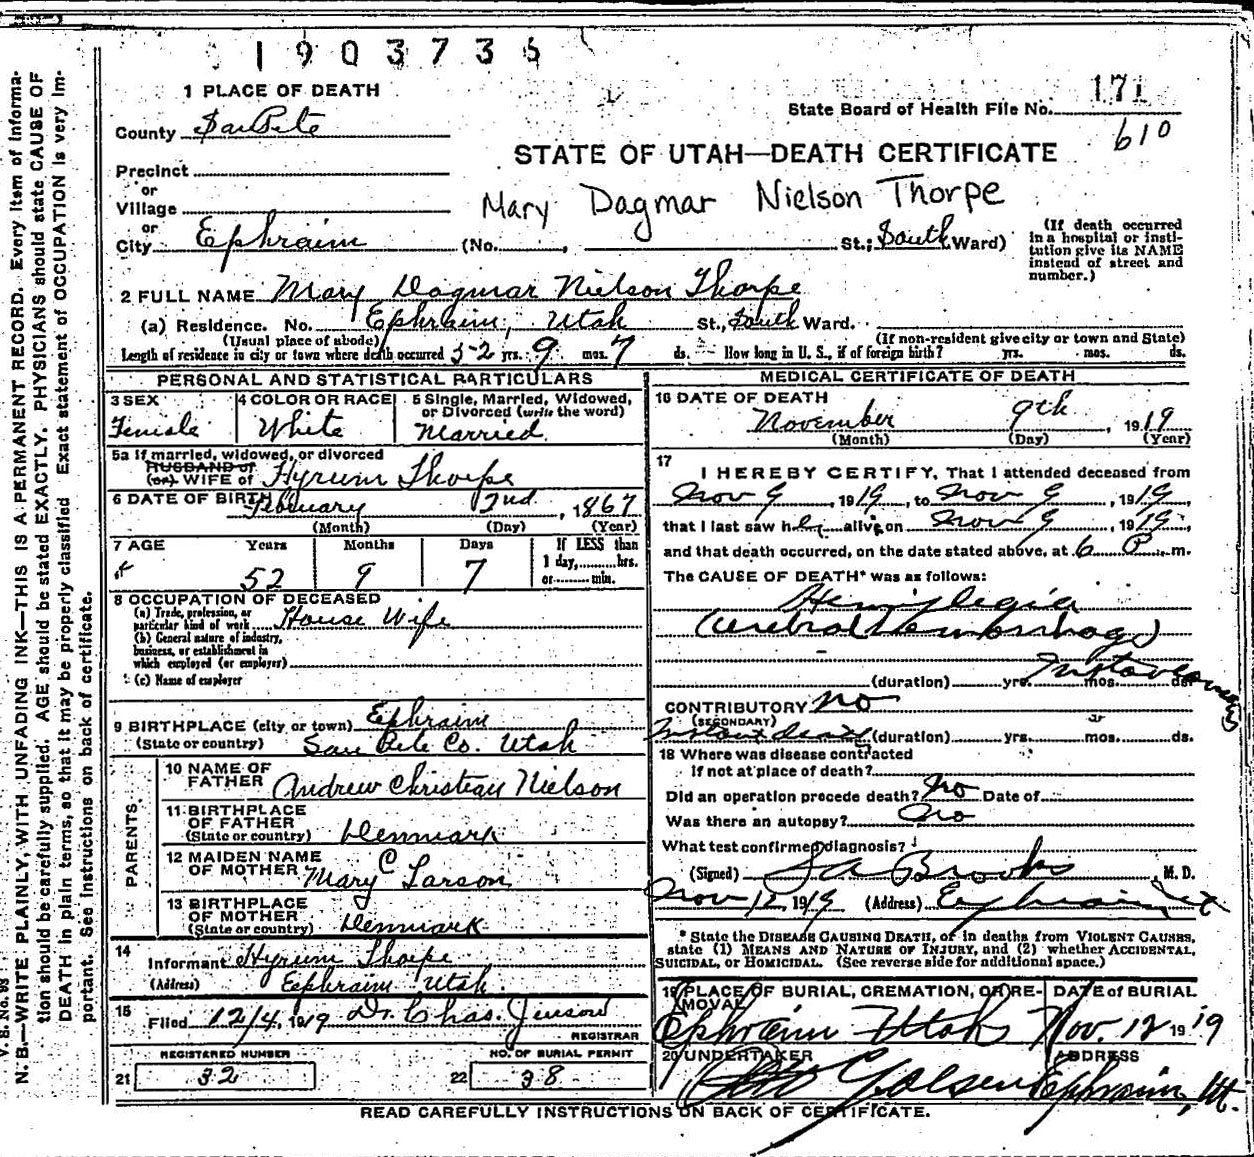 1903735
1 PLACE OF DEATH
State Board of Health File No. 171
610
County SanPete
STATE OF UTAH—DEATH CERTIFICATE
Precinct
or
Village
Mary Dagmar Nielson Thorpe
or
City Ephraim (No. , St.; South Ward)
(If death occurred
in a hospital or insti-
tution give its NAME
instead of street and
number.)
2 FULL NAME Mary Dagmar Nielson Thorpe
(a) Residence. No. Ephraim, Utah St., South Ward.
(Usual place of abode) (If non-resident give city or town and State)
Length of residence in city or town where death occurred 52 yrs. 9 mos. 7 ds. How long in U. S., if of foreign birth? yrs. mos. ds.
PERSONAL AND STATISTICAL PARTICULARS
3 SEX
Female
4 COLOR OR RACE
White
5 Single, Married, Widowed,
or Divorced (write the word)
Married
5a If married, widowed, or divorced
HUSBAND of
(or) WIFE of Hyrum Thorpe
6 DATE OF BIRTH February 2nd, 1867
(Month) (Day) (Year)
7 AGE Years Months Days
52 9 7
If LESS than
1 day, hrs.
or min.
8 OCCUPATION OF DECEASED
(a) Trade, profession, or
particular kind of work House Wife
(b) General nature of industry,
business, or establishment in
which employed (or employer)
(c) Name of employer
9 BIRTHPLACE (city or town) Ephraim
(State or country) San Pete Co. Utah
PARENTS
10 NAME OF
FATHER Andrew Christean Nielson
11 BIRTHPLACE
OF FATHER
(State or country) Denmark
12 MAIDEN NAME
OF MOTHER Mary C Larson
13 BIRTHPLACE
OF MOTHER
(State or country) Denmark
14
Informant Hyrum Thorpe
(Address) Ephraim Utah
15
Filed 12/4, 1919 Dr. Chas. Jenson
REGISTRAR
REGISTERED NUMBER
21 32
NO. OF BURIAL PERMIT
22 38
MEDICAL CERTIFICATE OF DEATH
16 DATE OF DEATH
November 9th, 1919
(Month) (Day) (Year)
17
I HEREBY CERTIFY, That I attended deceased from
Nov 9, 1919, to Nov 9, 1919
that I last saw her alive on Nov 9, 1919,
and that death occurred, on the date stated above, at 6 P. m.
The CAUSE OF DEATH* was as follows:
Hemiplegia
(Cerebral Hemorrhage)
(duration) yrs. mos. ds.
CONTRIBUTORY no
(SECONDARY)
Instant death (duration) yrs. mos. ds.
18 Where was disease contracted
if not at place of death?
Did an operation precede death? No Date of
Was there an autopsy? No
What test confirmed diagnosis?
(Signed) Brooks, M. D.
Nov 12, 1919 (Address) Ephraim, Ut
* State the DISEASE CAUSING DEATH, or, in deaths from VIOLENT CAUSES,
state (1) MEANS AND NATURE OF INJURY, and (2) whether ACCIDENTAL,
SUICIDAL, or HOMICIDAL. (See reverse side for additional space.)
19 PLACE OF BURIAL, CREMATION, OR RE-
MOVAL
Ephraim Utah
DATE of BURIAL
Nov. 12 1919
20 UNDERTAKER
ADDRESS
Ephraim, Ut.
READ CAREFULLY INSTRUCTIONS ON BACK OF CERTIFICATE.
V. S. No. 98
N. B.—WRITE PLAINLY, WITH UNFADING INK—THIS IS A PERMANENT RECORD. Every item of informa-
tion should be carefully supplied. AGE should be stated EXACTLY. PHYSICIANS should state CAUSE OF
DEATH in plain terms, so that it may be properly classified. Exact statement of OCCUPATION is very im-
portant. See instructions on back of certificate.